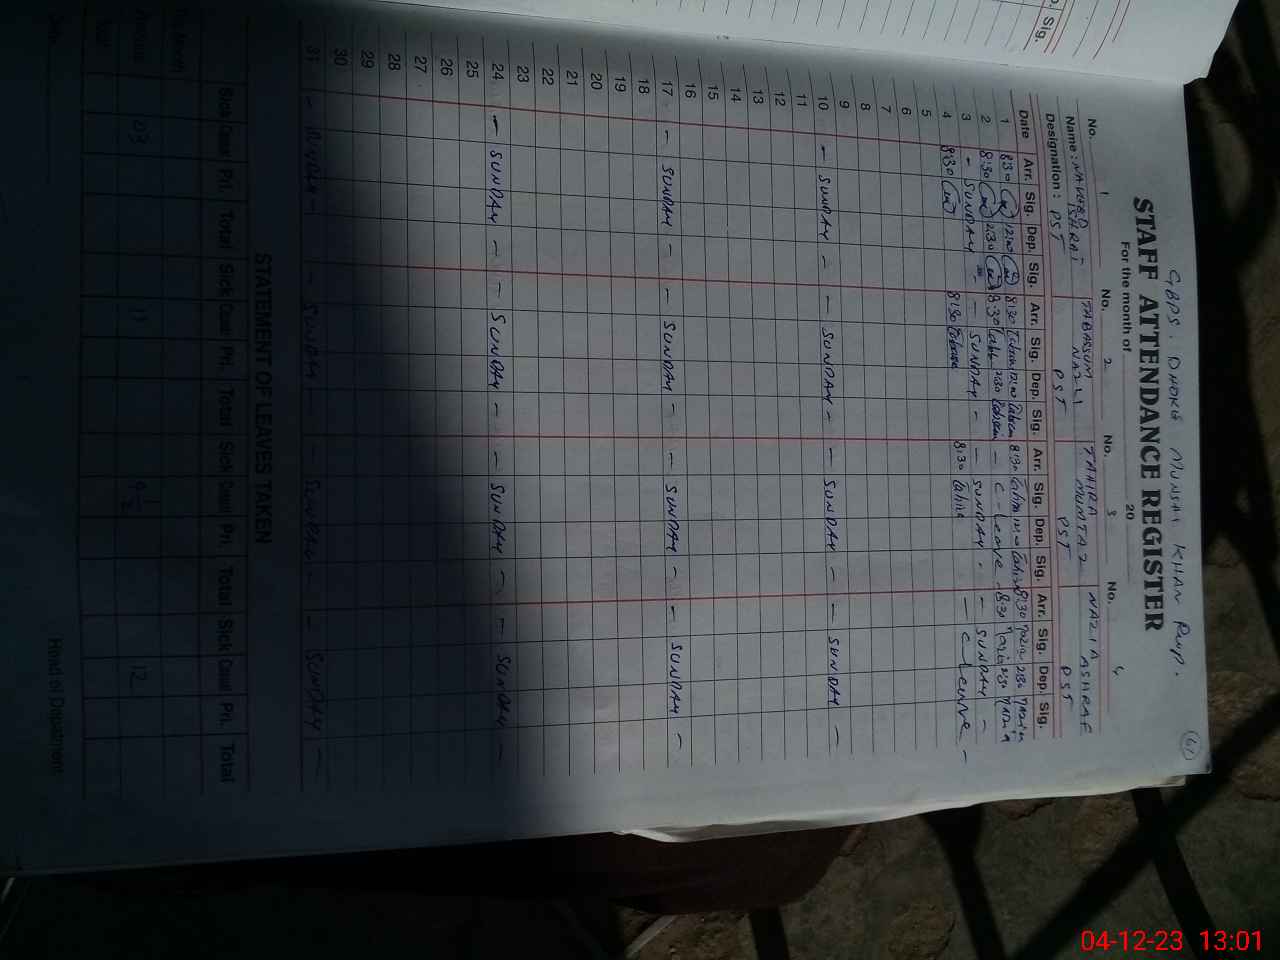 61
GBPS. DHOKE MUNSHI KHAN RWP.
STAFF ATTENDANCE REGISTER
For the month of 20
No. 1 No. 2 No. 3 No. 4
Name: NAVEED ISHRAT TABASSUM NAZLI TAHIRA MUMTAZ NAZIA ASHRAF
Designation: PST PST PST PST
Date Arr. Sig. Dep. Sig. Arr. Sig. Dep. Sig. Arr. Sig. Dep. Sig. Arr. Sig. Dep. Sig.
1 8:30 12:00 8:30 12:00 8:30 12:00 Tahira 8:30 Nazia 12:30 Nazia
2 8:30 2:30 8:30 2:30 - C-leave 8:30 Nazia 2:30 Nazia
3 - SUNDAY - - SUNDAY - - SUNDAY - - SUNDAY -
4 8:30 8:30 8:30 Tahira - C-leave -
5
6
7
8
9
10 - SUNDAY - - SUNDAY - - SUNDAY - - SUNDAY -
11
12
13
14
15
16
17 - SUNDAY - - SUNDAY - - SUNDAY - - SUNDAY -
18
19
20
21
22
23
24 - SUNDAY - - SUNDAY - - SUNDAY - - SUNDAY -
25
26
27
28
29
30
31 - SUNDAY - - SUNDAY - SUNDAY - - SUNDAY -
STATEMENT OF LEAVES TAKEN
Sick Casul Pri. Total Sick Casul Pri. Total Sick Casul Pri. Total Sick Casul Pri. Total
This Month
Previous 03 11 9 1/2 12
Total
Date Head of Department
Sig.
04-12-23 13:01